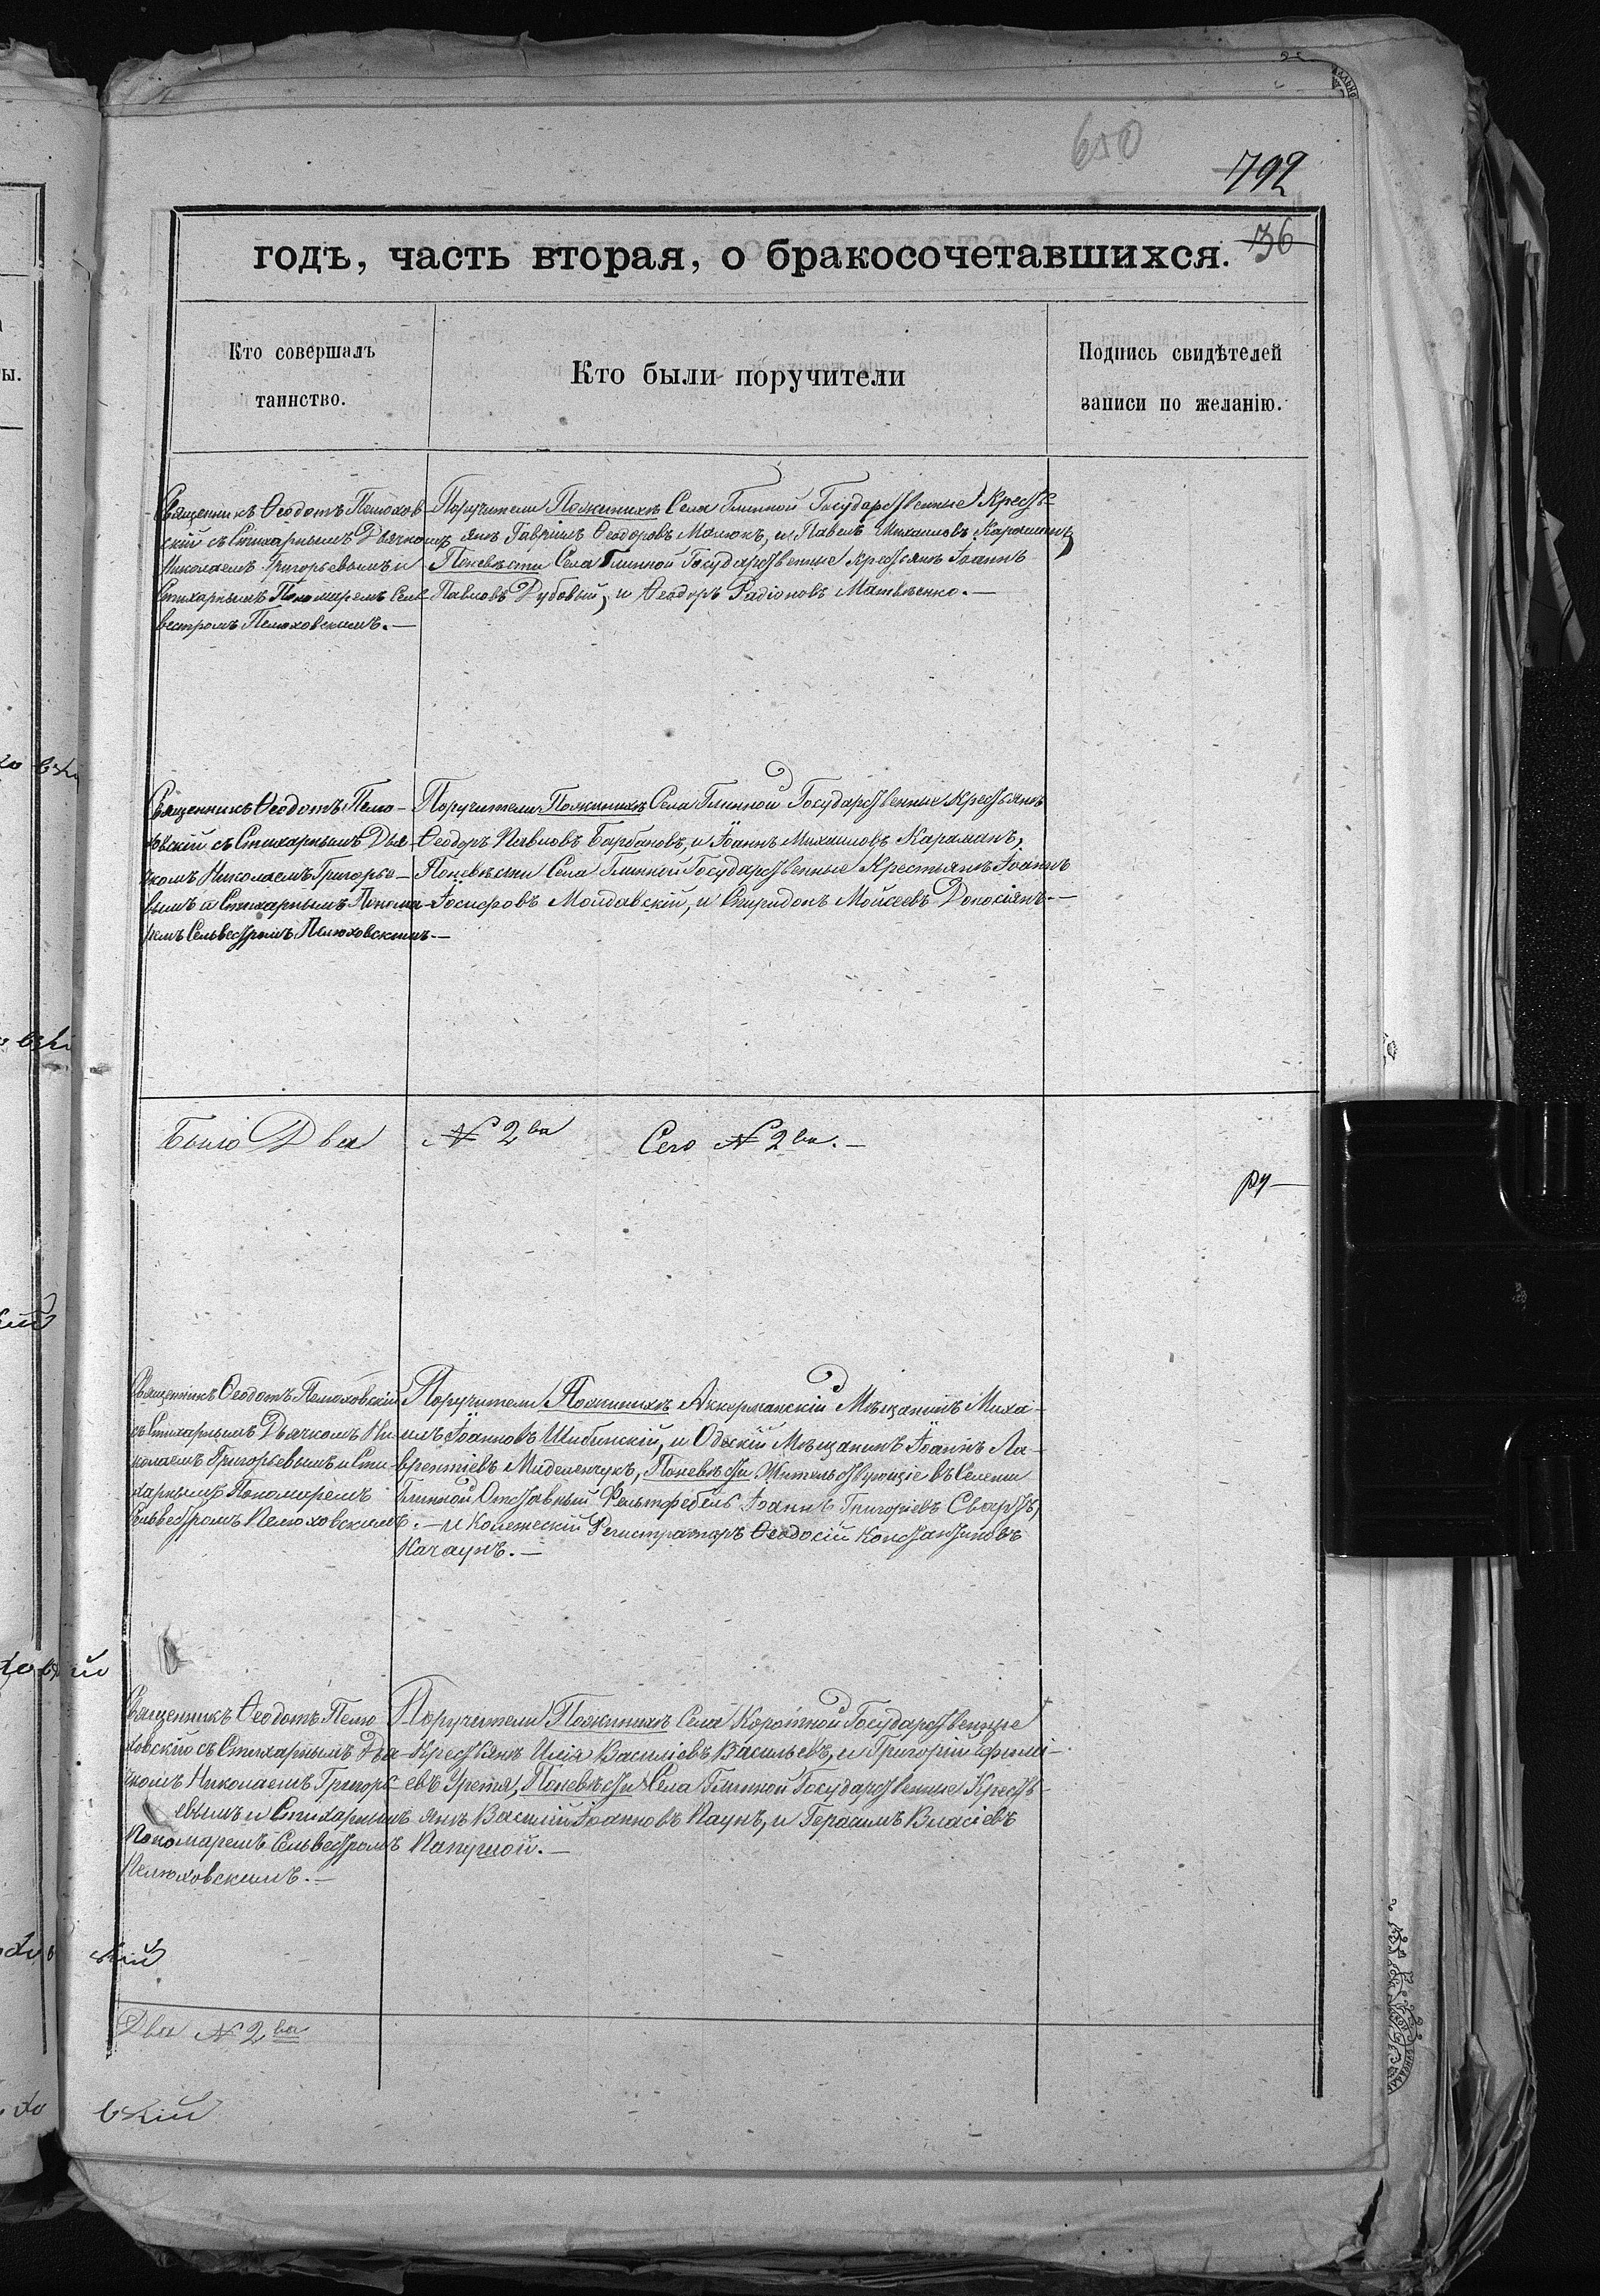 650
792
годъ, часть вторая, о бракосочетавшихся. 36
Кто совершалъ
таинство.
Кто были поручители
Подпись свидѣтелей
записи по желанію.
Священникъ Ѳеодотъ Пелюхов-
скій съ Стихарнымъ Дьячкомъ
Николаемъ Григорьевымъ и
Стихарнымъ Пономаремъ Сель-
вестромъ Пелюховскимъ.—
Поручители По женихѣ Села Глинной Государственные Кресть-
яне Гавріилъ Ѳеодоровъ Малюкъ, и Павелъ Михаиловъ Караманъ,
По невѣсти Села Глинной Государственные Крестьяне Іоаннъ
Павловъ Дубовый, и Ѳеодоръ Радіоновъ Матвѣенко.—
Священникъ Ѳеодотъ Пелю-
ховскій съ Стихарнымъ Дья-
чкомъ Николаемъ Григорье-
вымъ и Стихарнымъ Понома-
ремъ Сельвестромъ Пелюховскимъ.—
Поручители По женихѣ Села Глинной Государственные Крестьяне
Ѳеодоръ Павловъ Барбановъ, и Іоаннъ Михаиловъ Караманъ,
По невѣсти Села Глинной Государственные Крестьяне Іоаннъ
Іосифовъ Молдавскій, и Спиридонъ Мойсеевъ
Было Два № 2ва Сего № 2ва.—
ру—
Священникъ Ѳеодотъ Пелюховскій
съ Стихарнымъ Дьячкомъ Ни-
колаемъ Григорьевымъ и Сти-
харнымъ Пономаремъ
Сельвестромъ Пелюховскимъ.—
Поручители По женихѣ Аккерманскій Мѣщанинъ Миха-
илъ Іоанновъ Шибинскій, и Одескій Мѣщанинъ Іоаннъ Ла-
врентіевъ Миделенчукъ, По невѣсти Жительствующіе въ Селеніи
Глинной Отставный Фельтфебель Іоаннъ Григоріевъ
и Колежескій Регистраторъ Ѳеодосій Константиновъ
Качаунъ.—
Священникъ Ѳеодотъ Пелю
ховскій съ Стихарнымъ Дья-
чкомъ Николаемъ Григорь-
евымъ и Стихарнымъ
Пономаремъ Сельвестромъ
Пелюховскимъ.—
Поручители По женихѣ Села Коротной Государственные
Крестьяне Илія Василіевъ Васильевъ, и Григорій Ефимі-
евъ Уретя, По невѣсти Села Глинной Государственные Кресть-
яне Василій Іоанновъ Паунъ, и Герасимъ Власіевъ
Папушой.—
Два № 2ва
вскій